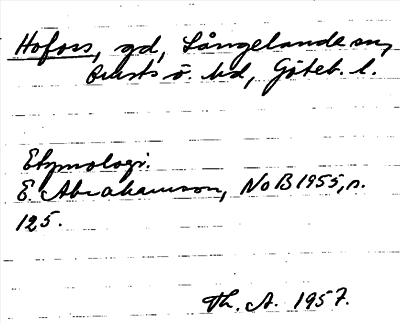 Hofoss, gd, Långelanda sn,
Orusts ö. hd, Göteb. l.
Etymologi.
E. Abrahamson, NoB 1955, s.
125.
Th. A. 1957.